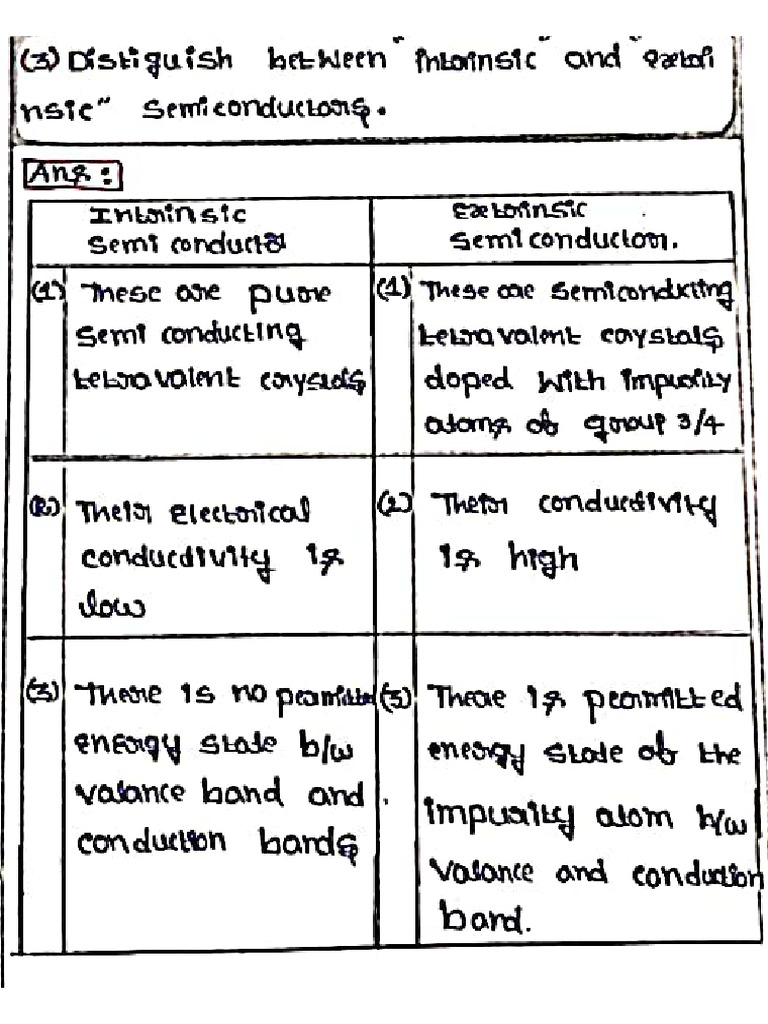 (3) Distiguish between "intrinsic" and "extri
nsic" semiconductors.
Ans :
Intrinsic
semi conductor
Extrinsic
semiconductor.
(1) These are pure
semi conducting
tetravalent crystals
(1) These are semiconducting
tetravalent crystals
doped with impurity
atoms of group 3/4
(2) Their electrical
conductivity is
low
(2) Their conductivity
is high
(3) There is no permitted
energy state b/w
valance band and
conduction bands
(3) There is permitted
energy state of the
impurity atom b/w
valance and conduction
band.